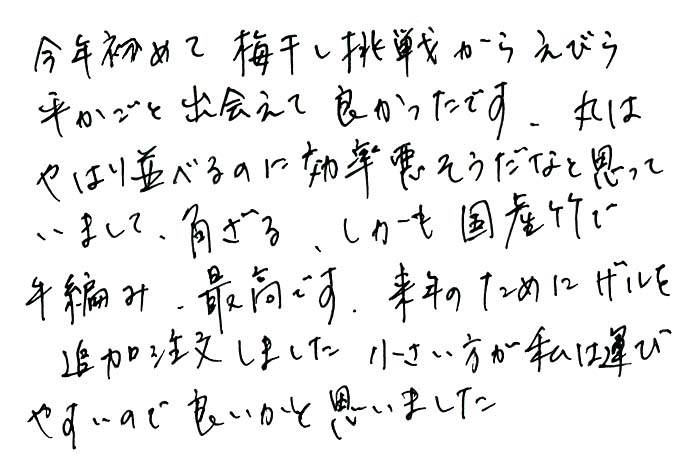 今年初めて梅干し挑戦からえびら
平かごと出会えて良かったです、丸は
やはり並べるのに効率悪そうだなと思って
いまして、角ざる、しかも国産竹で
手編み、最高です、来年のためにザルを
追加注文しました 小さい方が私は運び
やすいので良いかと思いました